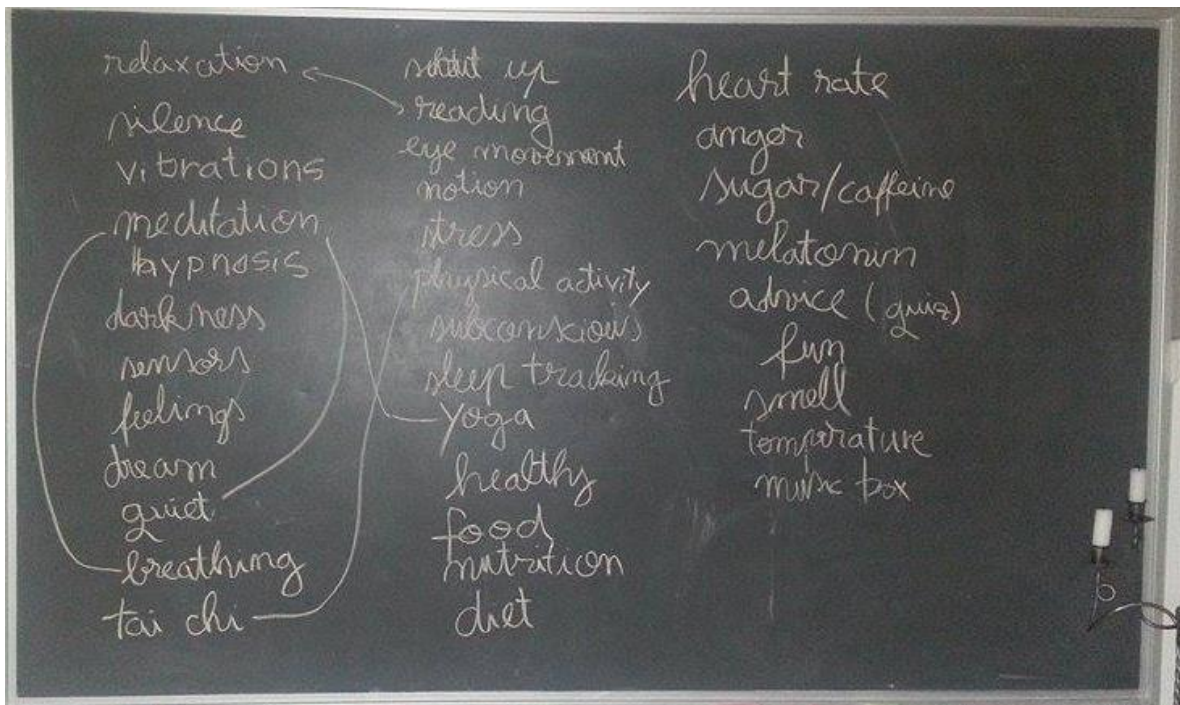 relaxation
silence
vibrations
meditation
hypnosis
darkness
sensors
feelings
dream
quiet
breathing
tai chi
up
reading
eye movement
motion
stress
physical activity
subconscious
sleep tracking
yoga
healthy
food
nutrition
diet
heart rate
anger
sugar/caffeine
melatonin
advice (quiz)
fun
smell
temperature
music box